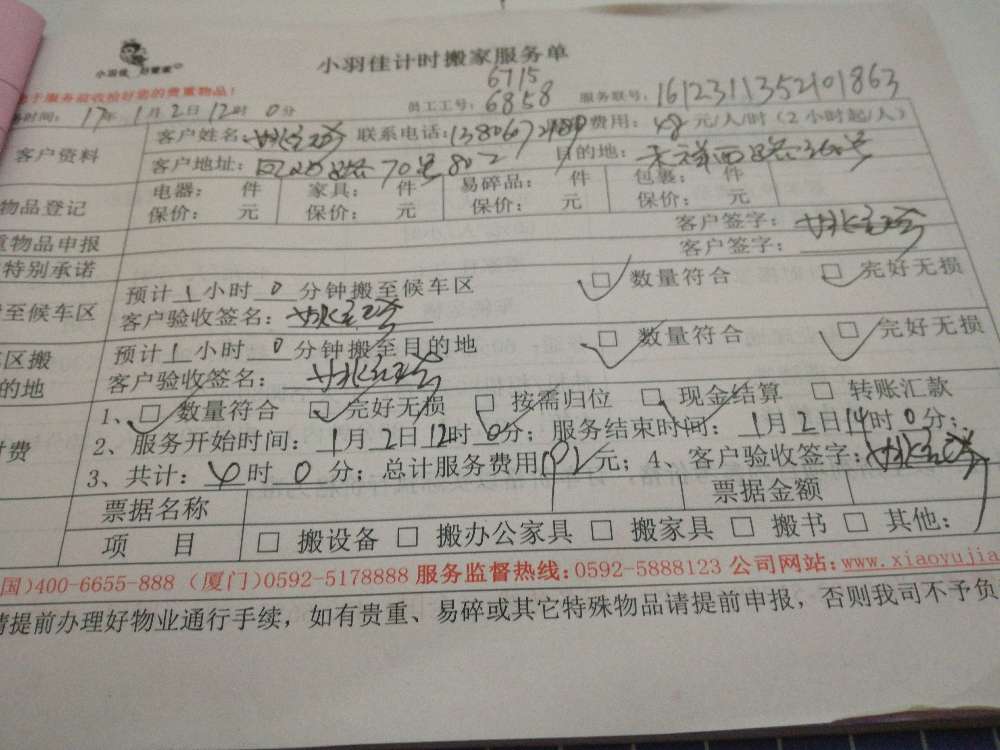 小羽佳 好管家
小羽佳计时搬家服务单
于服务验收检好您的贵重物品！
务时间：17年1月2日12时0分 员工工号：6715 6858 服务联号：1612311352101863
客户资料 客户姓名： 联系电话： 费用：48元/人/时（2小时起/人）
客户地址：路70号802 目的地：西路36号
物品登记 电器： 件 家具： 件 易碎品： 件 包裹： 件
保价： 元 保价： 元 保价： 元 保价： 元
重物品申报 客户签字：
特别承诺 客户签字：
至候车区 预计1小时0分钟搬至候车区 □ 数量符合 □ 完好无损
客户验收签名：
区搬 预计1小时0分钟搬至目的地 □ 数量符合 □ 完好无损
的地 客户验收签名：
付费 1、□ 数量符合 □ 完好无损 □ 按需归位 □ 现金结算 □ 转账汇款
2、服务开始时间：1月2日12时0分；服务结束时间：1月2日14时0分；
3、共计：4时0分；总计服务费用192元；4、客户验收签字：
票据名称 票据金额
项 目 □ 搬设备 □ 搬办公家具 □ 搬家具 □ 搬书 □ 其他：
国)400-6655-888（厦门)0592-5178888 服务监督热线：0592-5888123 公司网站：www.xiaoyujia
请提前办理好物业通行手续，如有贵重、易碎或其它特殊物品请提前申报，否则我司不予负